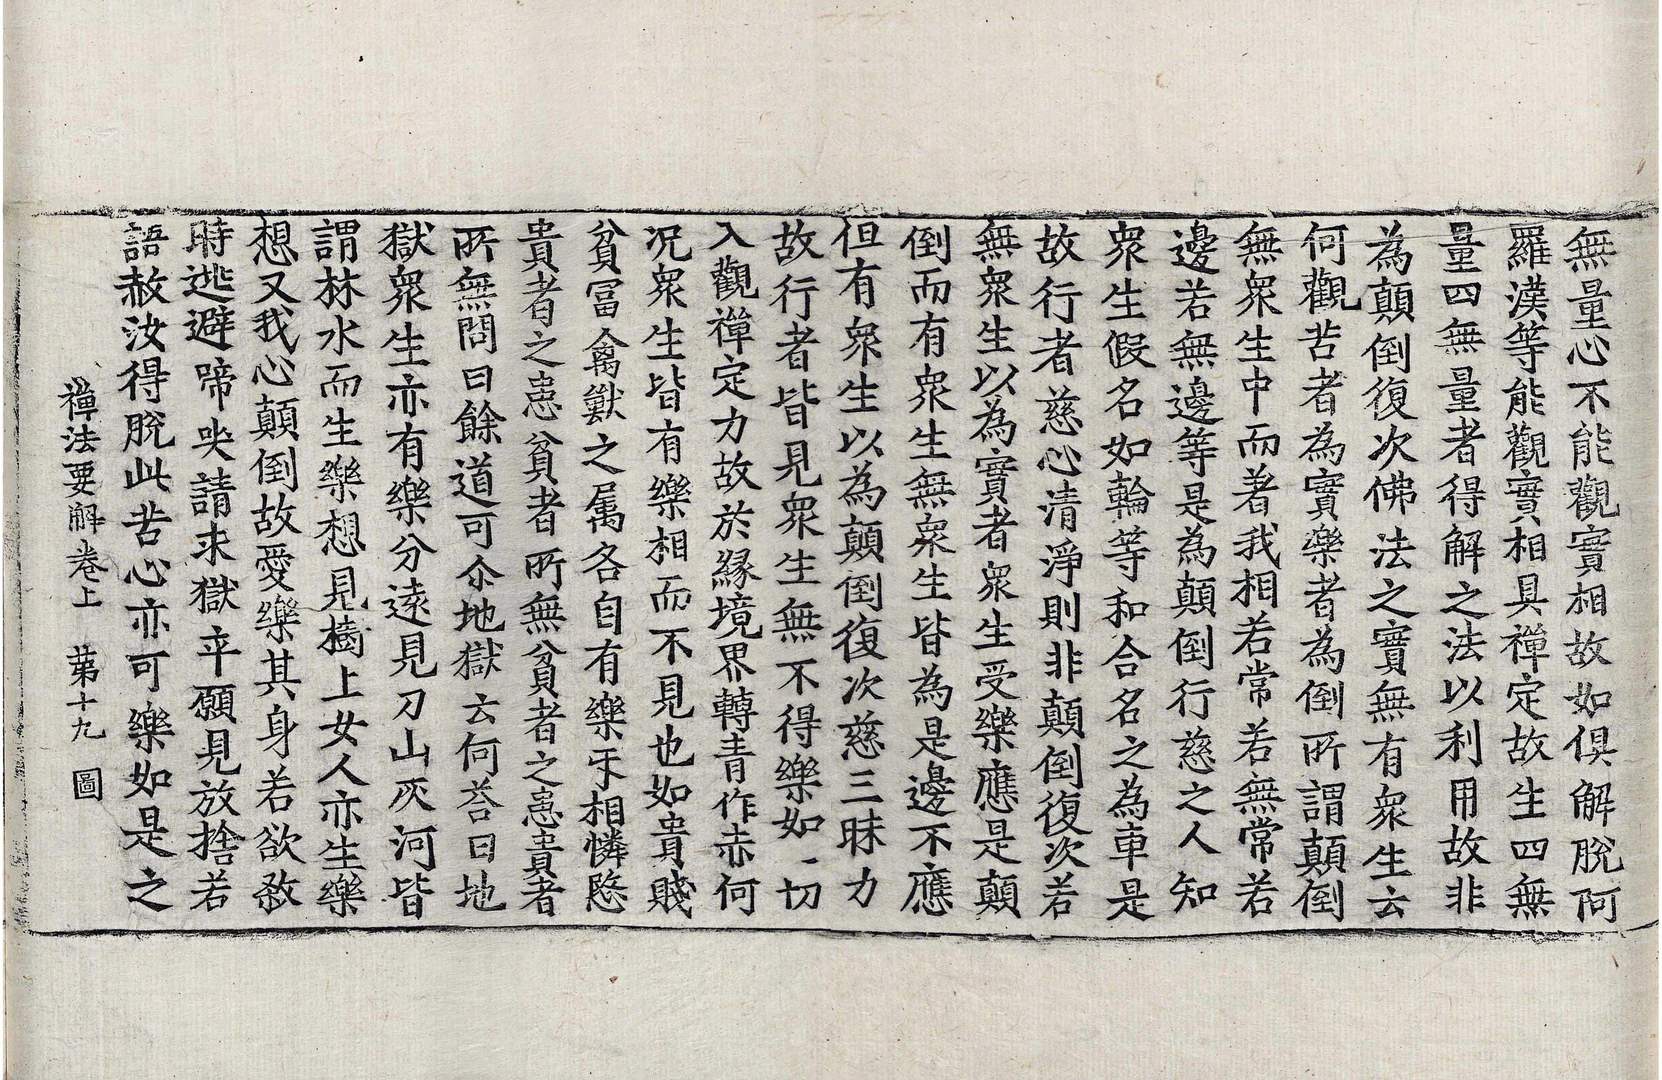 無量心不能觀實相故如俱解脫阿
羅漢等能觀實相具禪定故生四無
量四無量者得解之法以利用故非
為顛倒復次佛法之實無有衆生云
何觀苦者為實樂者為倒所謂顛倒
無衆生中而著我相若常若無常若
邊若無邊等是為顛倒行慈之人知
衆生假名如輪等和合名之為車是
故行者慈心清淨則非顛倒復次若
無衆生以為實者衆生受樂應是顛
倒而有衆生無衆生皆為是邊不應
但有衆生以為顛倒復次慈三昧力
故行者皆見衆生無不得樂如一切
入觀禪定力故於緣境界轉青作赤何
况衆生皆有樂相而不見也如貴賤
貧冨禽獸之属各自有樂乐相憐愍
貴者之患貧者所無貧者之患貴者
所無問曰餘道可尒地獄云何荅曰地
獄衆生亦有樂分遠見刀山灰河皆
謂林水而生樂想見樹上女人亦生樂
想又我心顛倒故愛樂其身若欲殺
時逃避啼哭請求獄卒願見放捨若
語赦汝得脫此苦心亦可樂如是之
禪法要解卷上　苐十九　圖